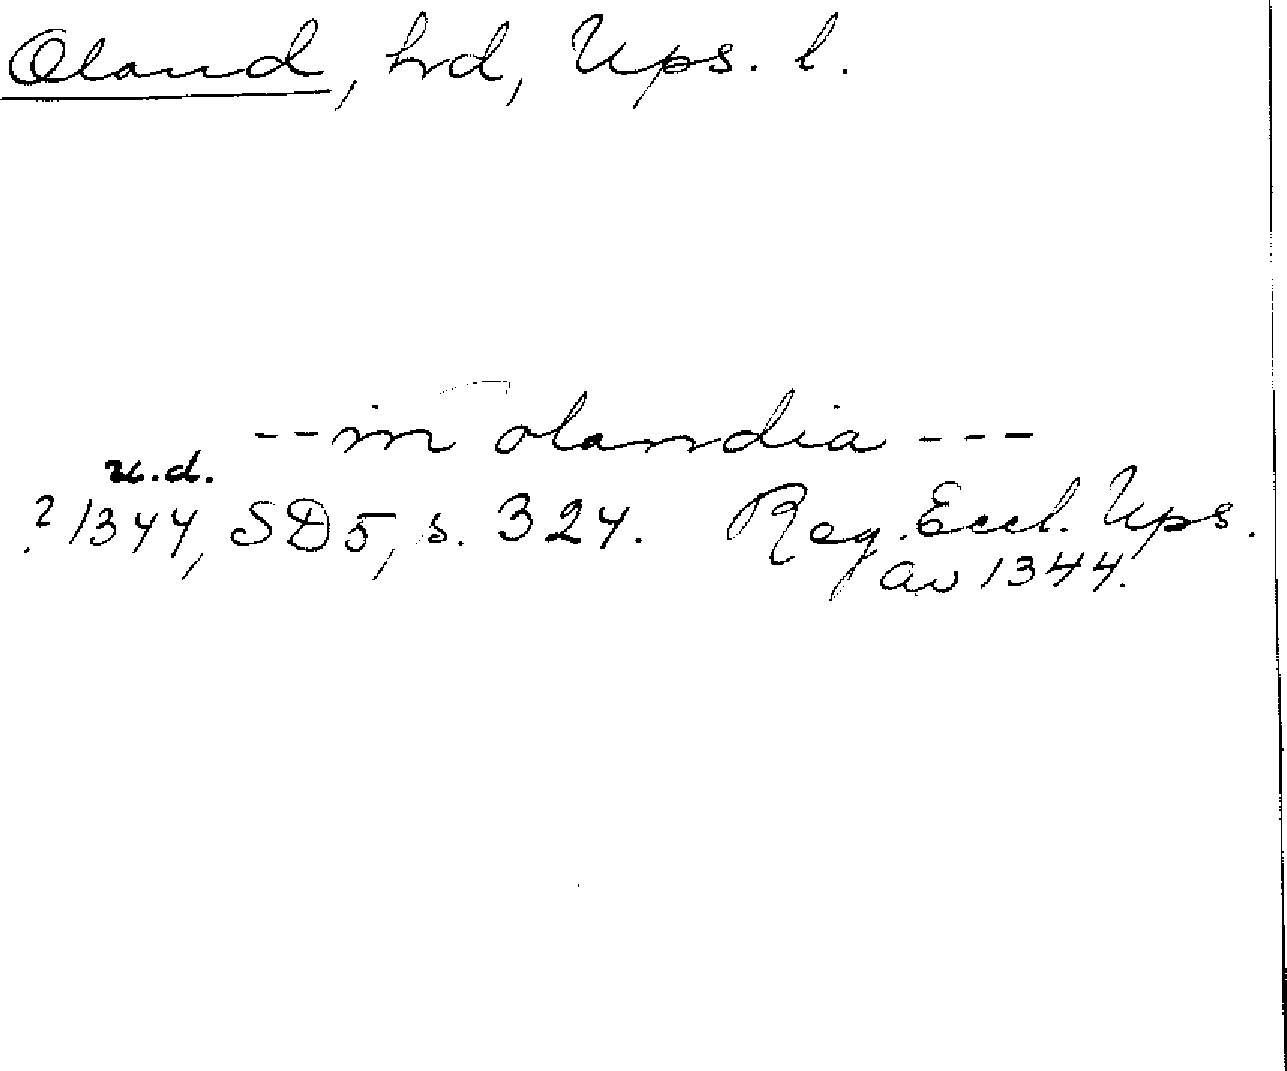 Oland, hd, Ups. l.
--in olandia---
u.d.
? 1344, SD5, s. 324. Reg. Eccl. Ups.
av 1344.